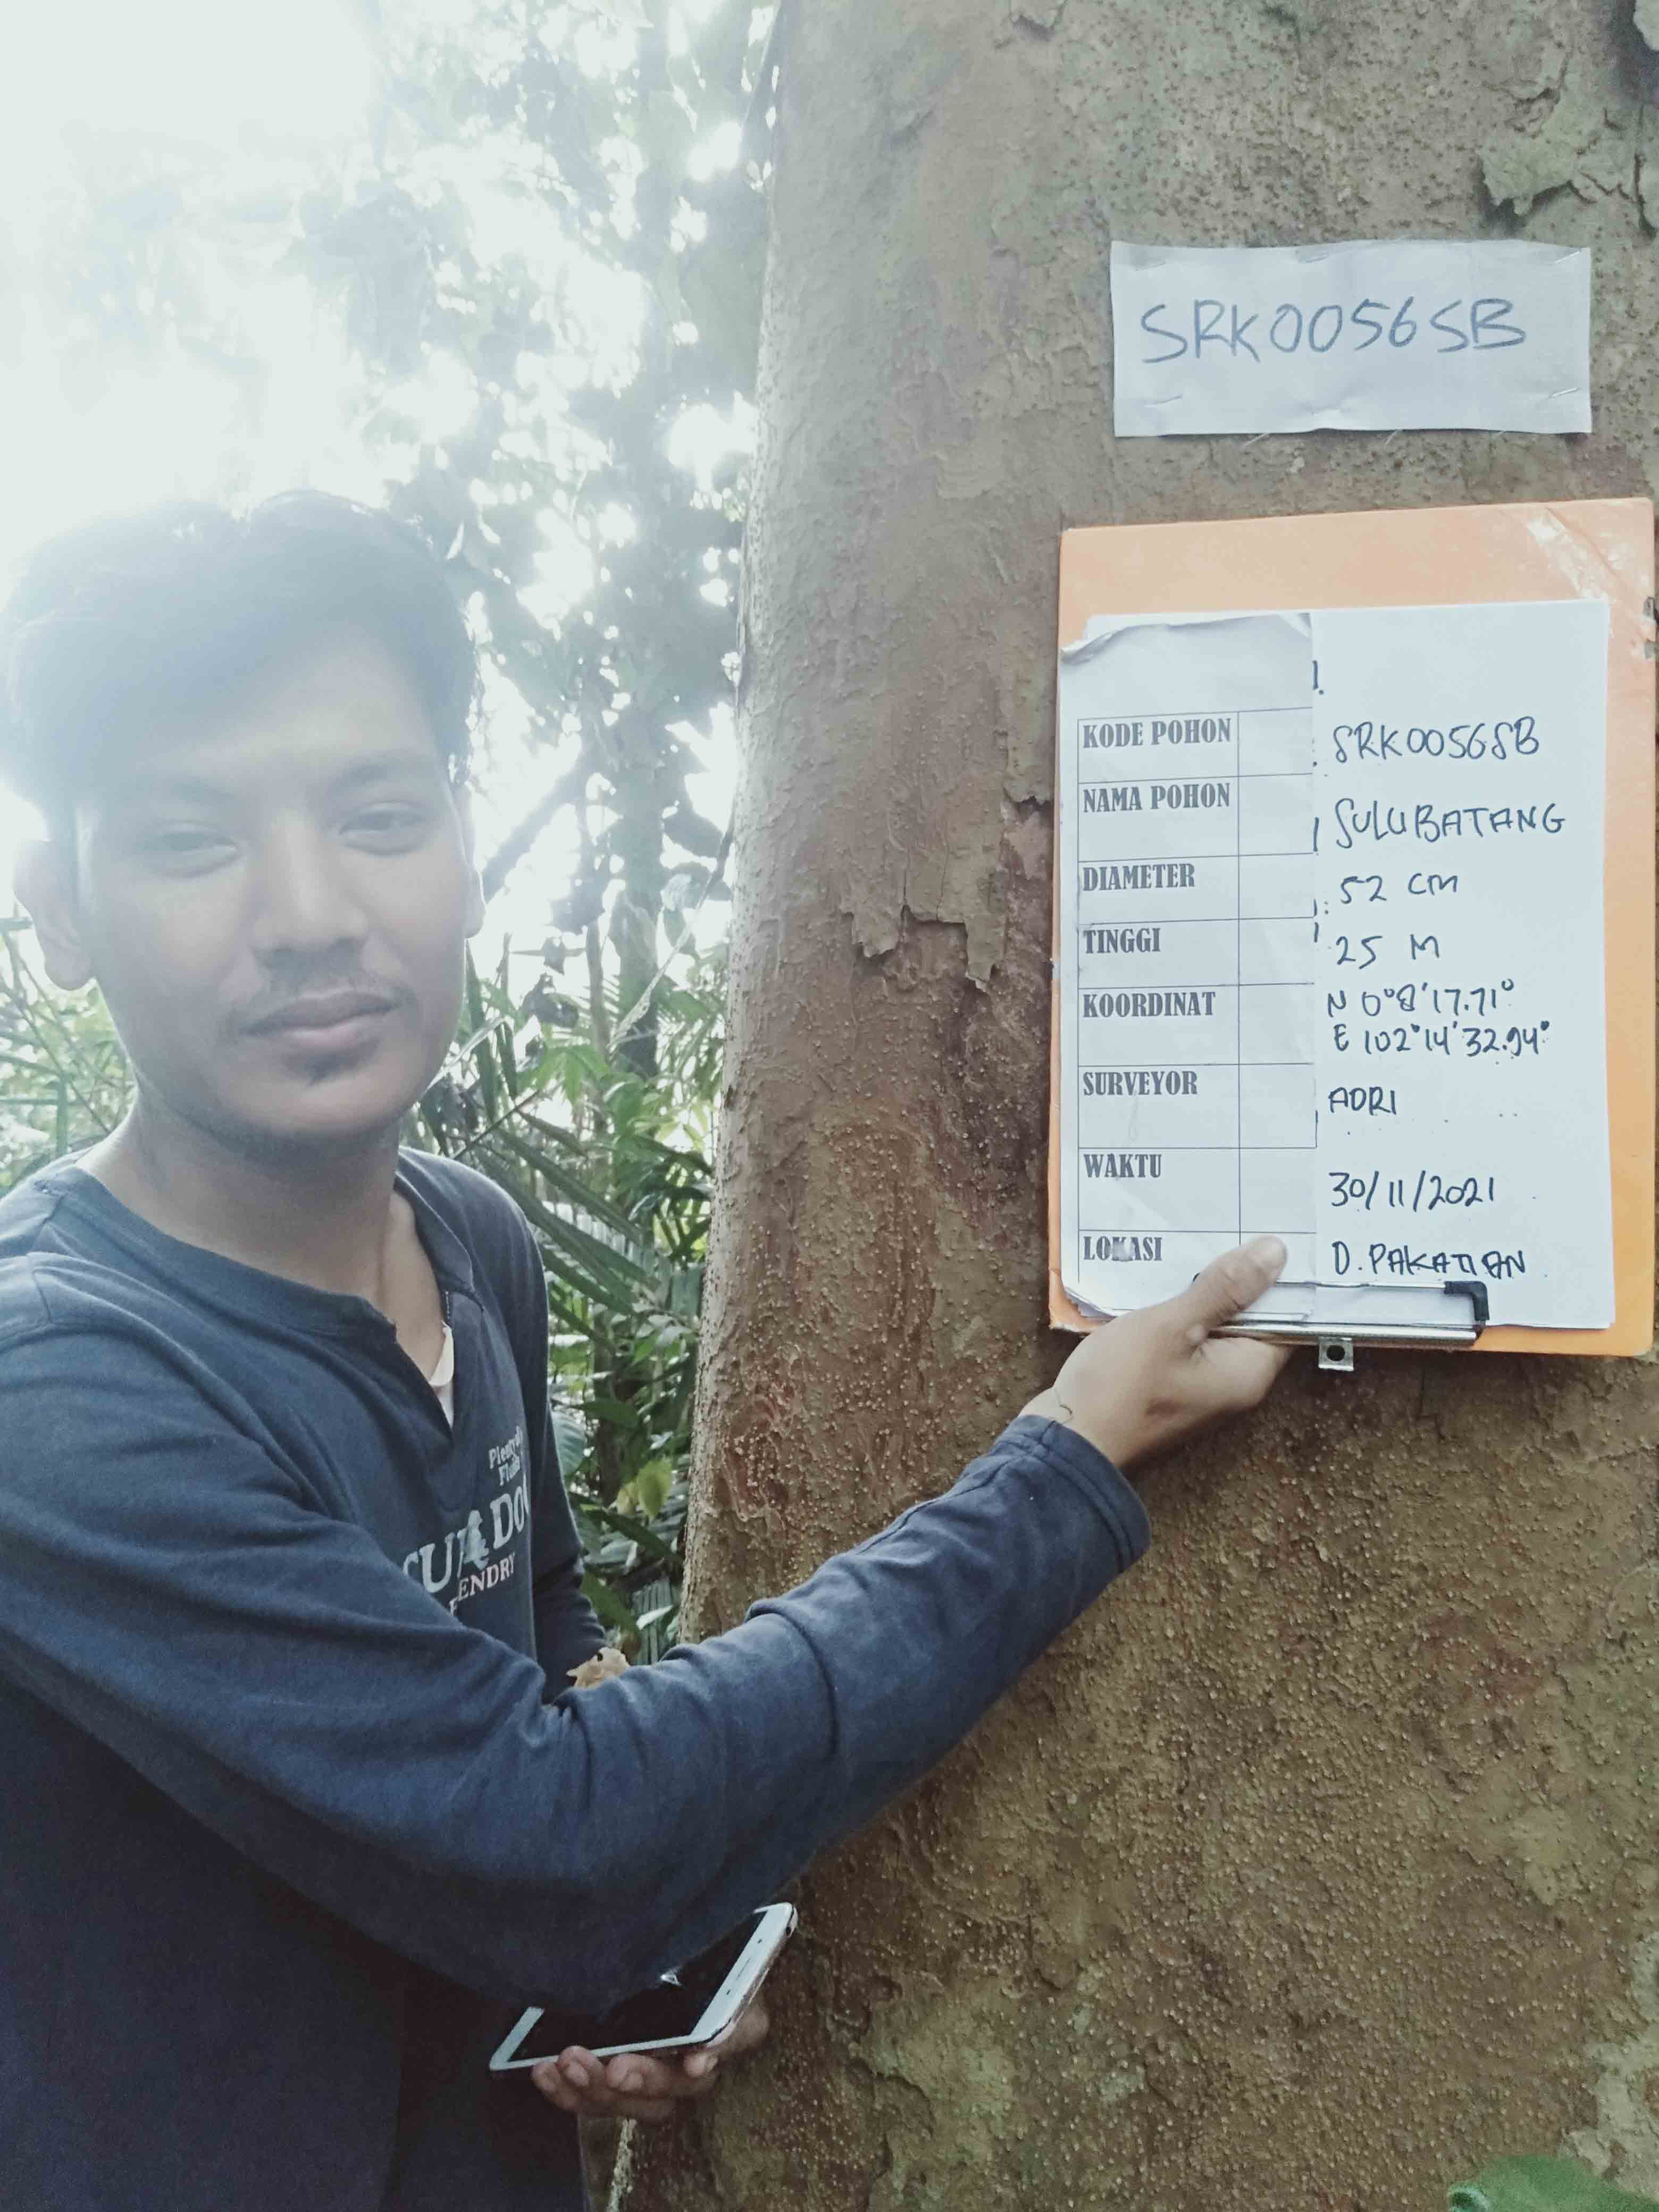 SRK0056SB
KODE POHON SRK0056SB
NAMA POHON SULUBATANG
DIAMETER : 52 CM
TINGGI 25 M
KOORDINAT N 0°8'17.71°
E 102°14'32.94"
SURVEYOR ADRI
WAKTU 30/11/2021
LOKASI D. PAKATIAN
ENDRY